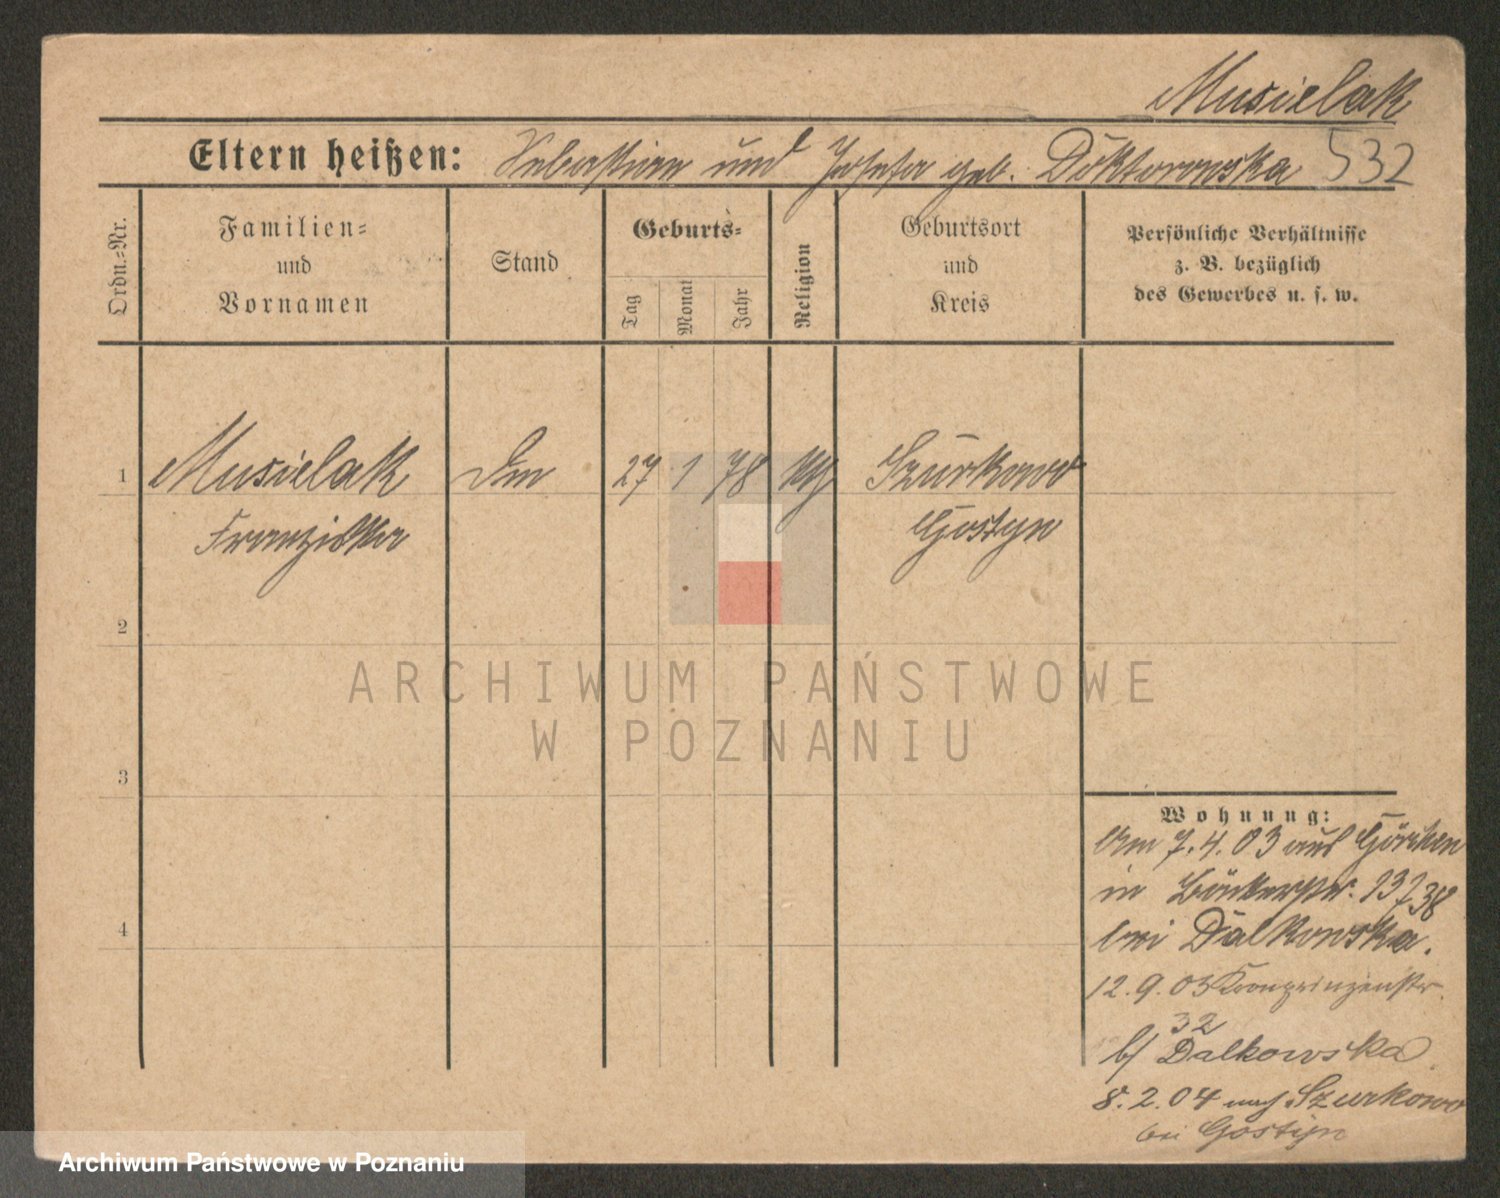 Musielak
Eltern heißen: Sebastian und Josefa geb. Doktorowska 532
Ordn.-Nr.
Familien-
und
Vornamen
Stand
Geburts-
Tag
Monat
Jahr
Religion
Geburtsort
und
Kreis
Persönliche Verhältnisse
z. B. bezüglich
des Gewerbes u. s. w.
1 Musielak 27 1 78 Szurkowo
Franziska Gostyn
2
3
4
Wohnung:
Am 7.4.03 aus Görchen
in Bäckerstr.
bei Dalkowska.
12.9.03 Kronprinzenstr.
32
b/ Dalkowska
8.2.04 nach Szurkowo
bei Gostyn
ARCHIWUM PAŃSTWOWE
W POZNANIU
Archiwum Państwowe w Poznaniu